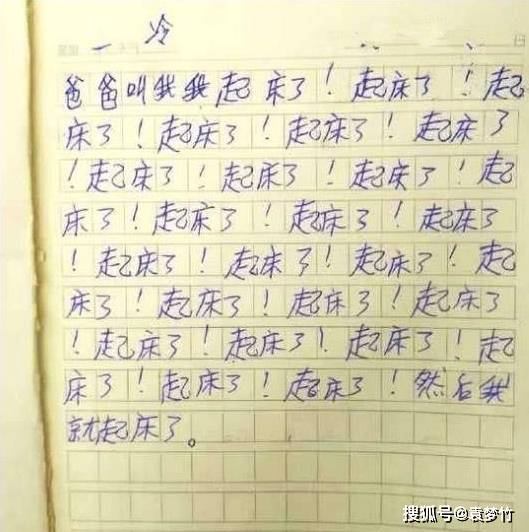 冷
爸爸叫我我起床了！起床了！起
床了！起床了！起床了！起床了
！起床了！起床了！起床了！起
床了！起床了！起床了！起床了
！起床了！起床了！起床了！起
床了！起床了！起床了！起床了
！起床了！起床了！起床了！起
床了！起床了！起床了！然后我
就起床了。
搜狐号@袁梦竹